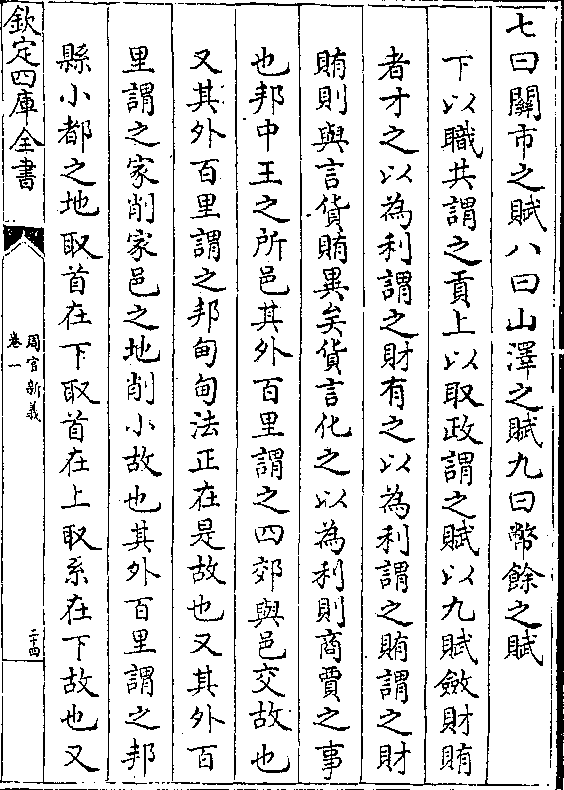 七曰關市之賦八曰山澤之賦九曰幣餘之賦
下以職共謂之貢上以取政謂之賦以九賦斂財賄
者才之以為利謂之財有之以為利謂之賄謂之財
賄則與言貨賄異矣貨言化之以為利則商賈之事
也邦中王之所邑其外百里謂之四郊與邑交故也
又其外百里謂之邦甸甸法正在是故也又其外百
里謂之家削家邑之地削小故也其外百里謂之邦
縣小都之地取首在下取首在上取系在下故也又
欽定四庫全書
周官新義
卷一
二十四